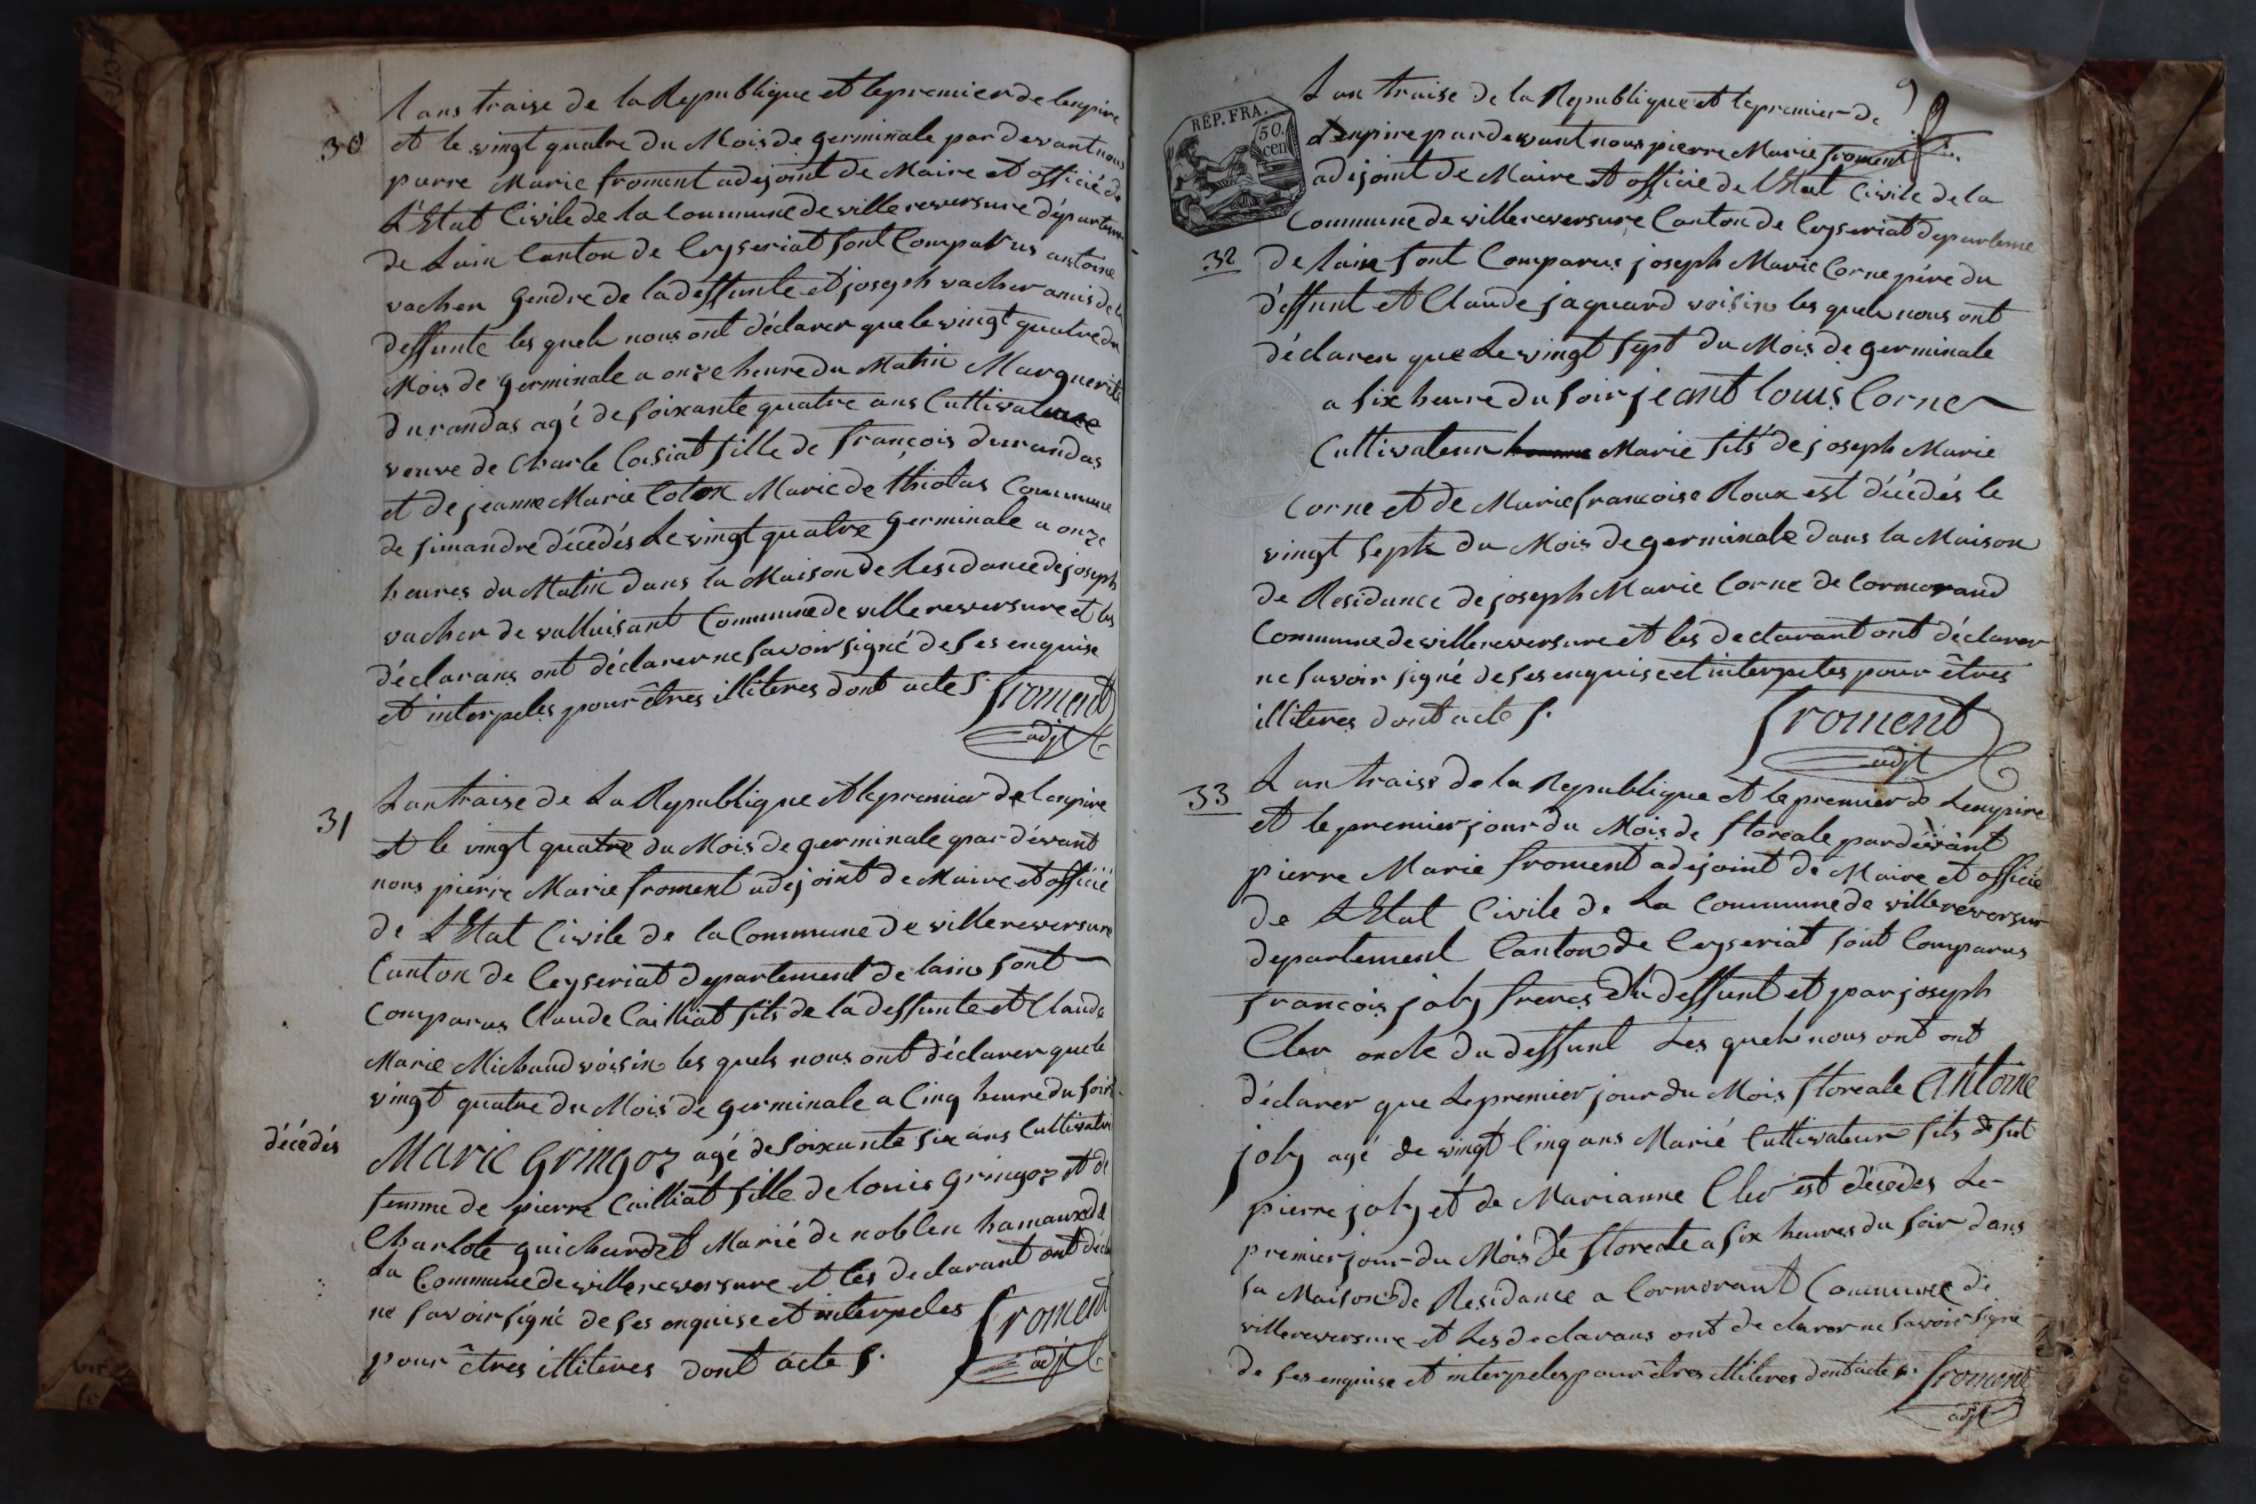 30
lans traise de la Republique et lepremier de lenpire
et le vingt quatre du Mois de germinale par devant nous
pierre Marie froment adejoint de Maire et officié de
L'Etat Civile de la Commune de villereversure département
de Lain Canton de Ceyseriat sont Comparus antoine
vacher gendre de la deffunte et joseph vacher amis de la
deffunte les quels nous ont déclarer que le vingt quatre du
Mois de germinale a onze heure du Matin Marguerite
durandas agé de soixante quatre ans Cultivatrice
veuve de Charle Cosiat fille de françois durandas
et de jeanne Marie Coton Marie de thiolas Commune
de simandre décedés Le vingt quatre germinale a onze
heures du Matin dans la Maison de Residance de joseph
vacher de valluisant Commune de villereversure et les
déclarans ont déclarer ne savoir signé de ses enquise
et interpeles pour êtres illiteres dont acte s. froment
adjt
31
Lan traise de La Republique et lepremier de lenpire
et le vingt quatre du Mois de germinale par dévant
nous pierre Marie froment adejoint de Maire et officié
de L'Etat Civile de la Commune de villereversure
Canton de Ceyseriat departement de lain sont
Comparus Claude Cailliat fils de la deffunte et Claude
Marie Michaud voisin les quels nous ont déclarer que le
vingt quatre du Mois de germinale a Cinq heure du soir
décédés
Marie Gringoz agé de soixante six ans Cultivatri
femme de pierre Cailliat fille de louis gringoz et de
Charlote guichardet Marié de noblen hamaux de
La Commune de villereversure et les declarant ont décla
ne savoir signé de ses enquise et interpeles froment
pour êtres illiteres dont acte s. adjt
9
REP. FRA.
50.
cen
Lan traise de la Republique et lepremier de
Lenpire par devant nous pierre Marie froment
adejoint de Maire et officié de l'Etat Civile de la
Commune de villereversure Canton de Ceyseriat departeme
32
de lain sont Comparus joseph Marie Corne pére du
deffunt et Claude jaquard voisin les quels nous ont
déclarer que Le vingt sept du Mois de germinale
a six heure du soir jeant louis Corne
Cultivateur Marie fils de joseph Marie
Corne et de Marie francoise Roux est décédés le
vingt septe du Mois de germinale dans la Maison
de Residance de joseph Marie Corne de Cormorand
Commune de villereversure et les declarant ont déclarer
ne savoir signé de ses enquise et interpeles pour êtres
illiteres dont acte s. froment
adjt
33
Lan traise de la Republique et le premier de Lenpire
et le premier jour du Mois de floreale pardevant
pierre Marie froment adejoint de Maire et officié
de L'Etat Civile de La Commune de villereversur
departement Canton de Ceyseriat sont Comparus
françois joly freres du deffunt et par joseph
Cler oncle du deffunt Les quels nous ont ont
déclarer que Lepremier jour du Mois floreale Antoine
joly agé de vingt Cinq ans Marié Cultivateur fils de fut
pierre joly et de Marianne Cler est décedes Le
premier jour du Mois de floreale a six heures du soir dans
sa Maison de Residance a Cormorant Commune de
villereversure et Les declarans ont declarer ne savoir signé
de ses enquise et interpeles pour êtres illiteres dont acte s. froment
adjt